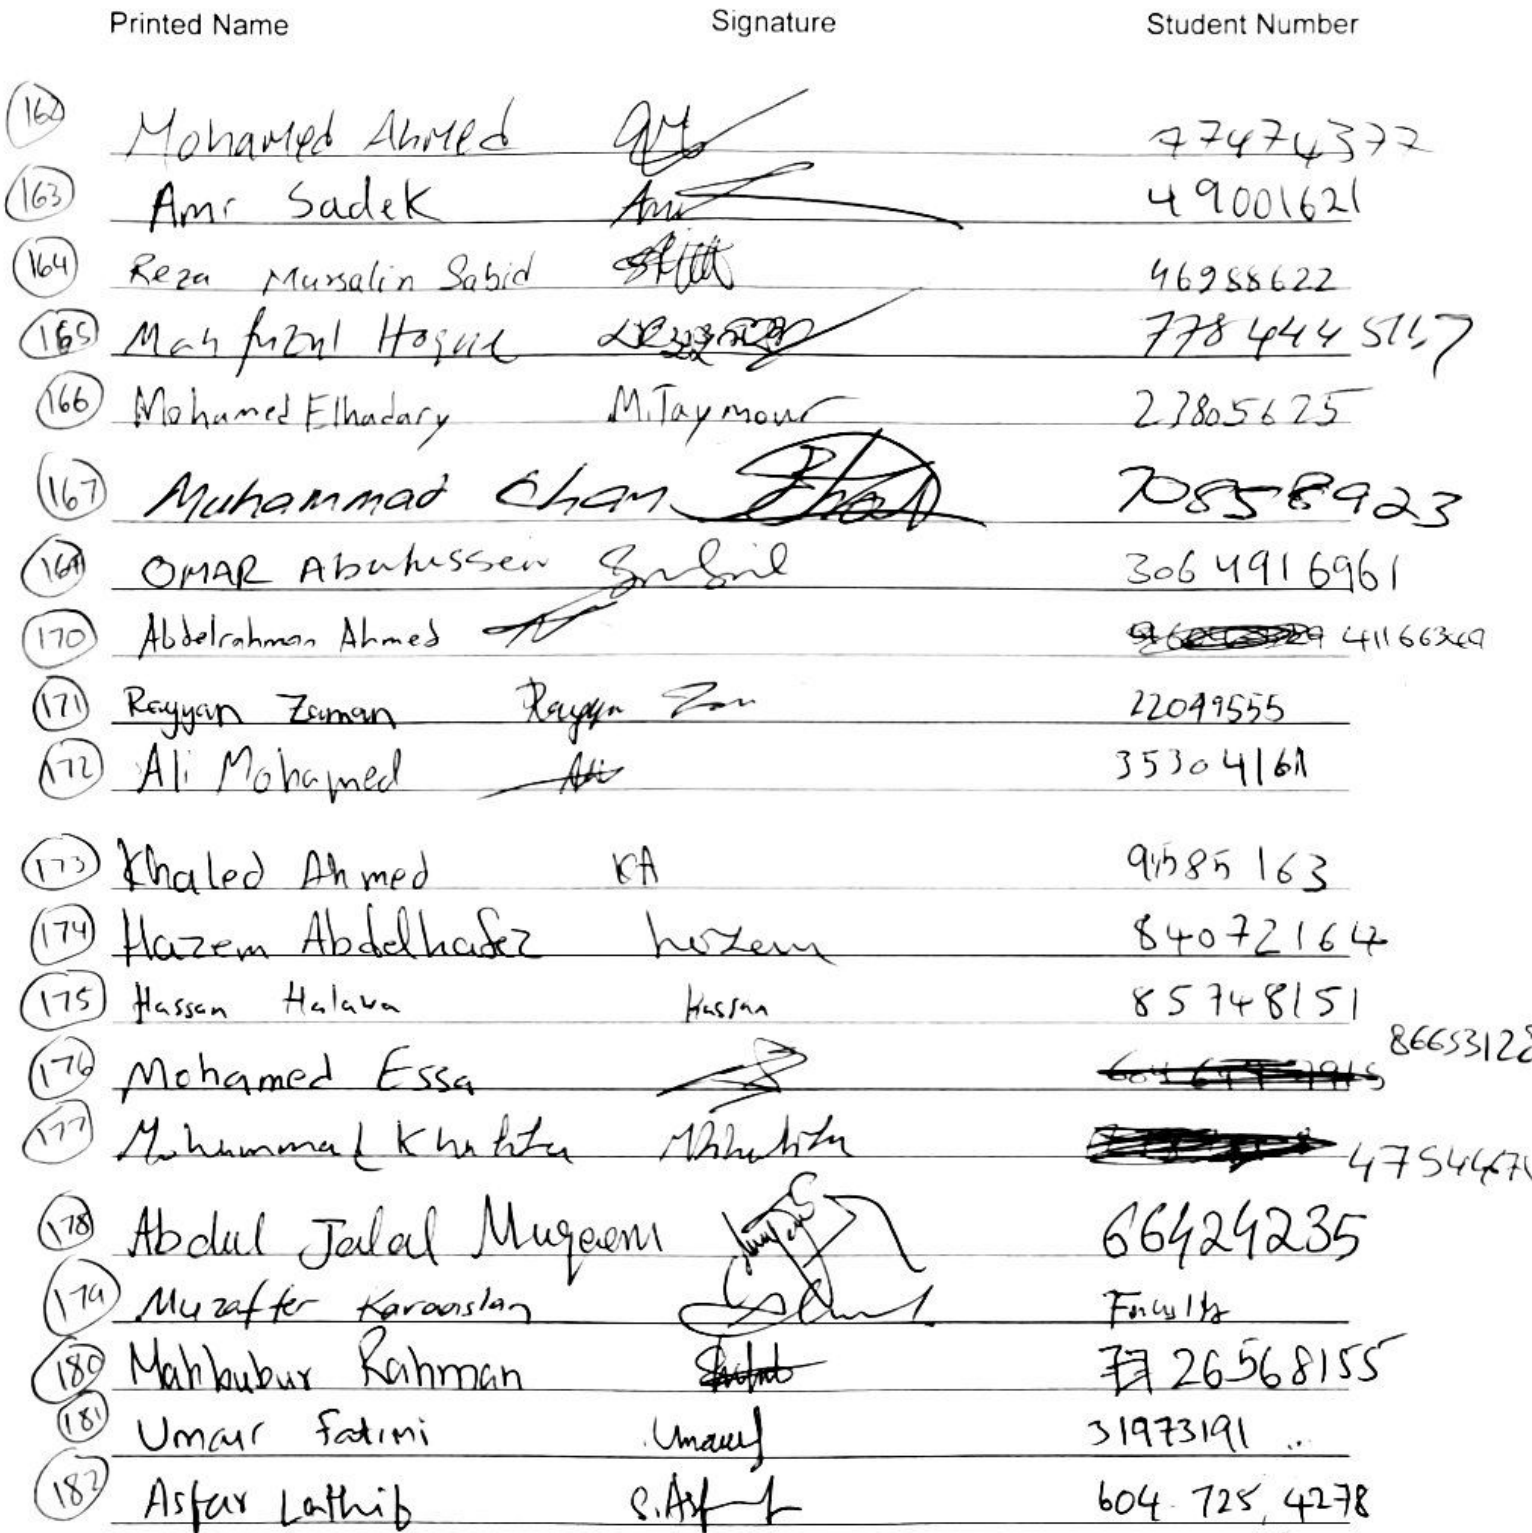 Printed Name Signature Student Number
162 Mohamed Ahmed 77474377
163 Amr Sadek Amr 49001621
164 Reza Mursalin Sabid 46988622
165 Mahfuzul Hoque 778444
166 Mohamed Elhadary M.Taymour 23805625
167 Muhammad Chan 70858923
169 OMAR Abuhussen 306 4916961
170 Abdelrahman Ahmed
171 Rayyan Zaman Rayyan Zan 22049555
172 Ali Mohamed Ali
173 Khaled Ahmed KA
174 Hazem Abdelhafez hozem 84072164
175 Hassan Halawa Hassan 85748151
176 Mohamed Essa 8665312
177 Mohammad Khalifa
178 Abdul Jalal Muqeem 66424235
179 Muzaffer Karaaslan Faculty
180 Mahbubur Rahman 26568155
181 Umair Fatimi Umair 31973191
182 Asfar Lathif S.Asf 604.725.4278